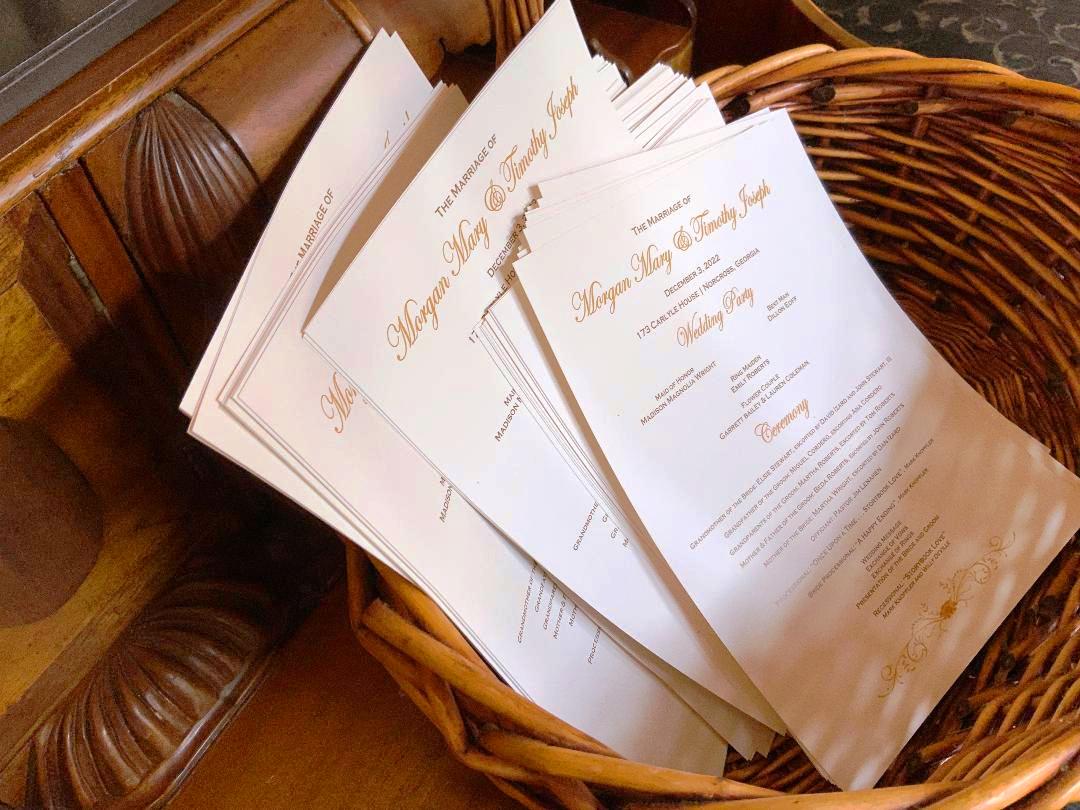 The Marriage of
Morgan Mary & Timothy Joseph
December 3, 2022
173 Carlyle House | Norcross, Georgia
Wedding Party
Maid of Honor
Madison Magnolia Wright
Best Man
Dillon Eoff
Ring Maiden
Emily Roberts
Flower Couple
Garrett Bailey & Lauren Coleman
Ceremony
Grandmother of the Bride: Elsie Stewart, escorted by David Izard and John Stewart, III
Grandfather of the Groom: Miguel Cordero, escorting Ana Cordero
Grandparents of the Groom: Martha Roberts, Escorted by Tom Roberts
Mother & Father of the Groom: Beda Roberts, Escorted by John Roberts
Mother of the Bride: Martha Wright, escorted by Dan Izard
Officiant: Pastor Jim Lenahen
Processional: "Once Upon a Time... Storybook Love", Mark Knopfler
Bride Processional: "A Happy Ending", Mark Knopfler
Wedding Message
Exchange of Vows
Exchange of Rings
Presentation of the Bride and Groom
Recessional: "Storybook Love"
Mark Knopfler and Willy DeVille
The Marriage of
Morgan Mary & Timothy Joseph
December 3,
17
Madison M
Grandmothe
Marriage of
Mo
Madison
Grandmother of
Mother &
Mother
Process